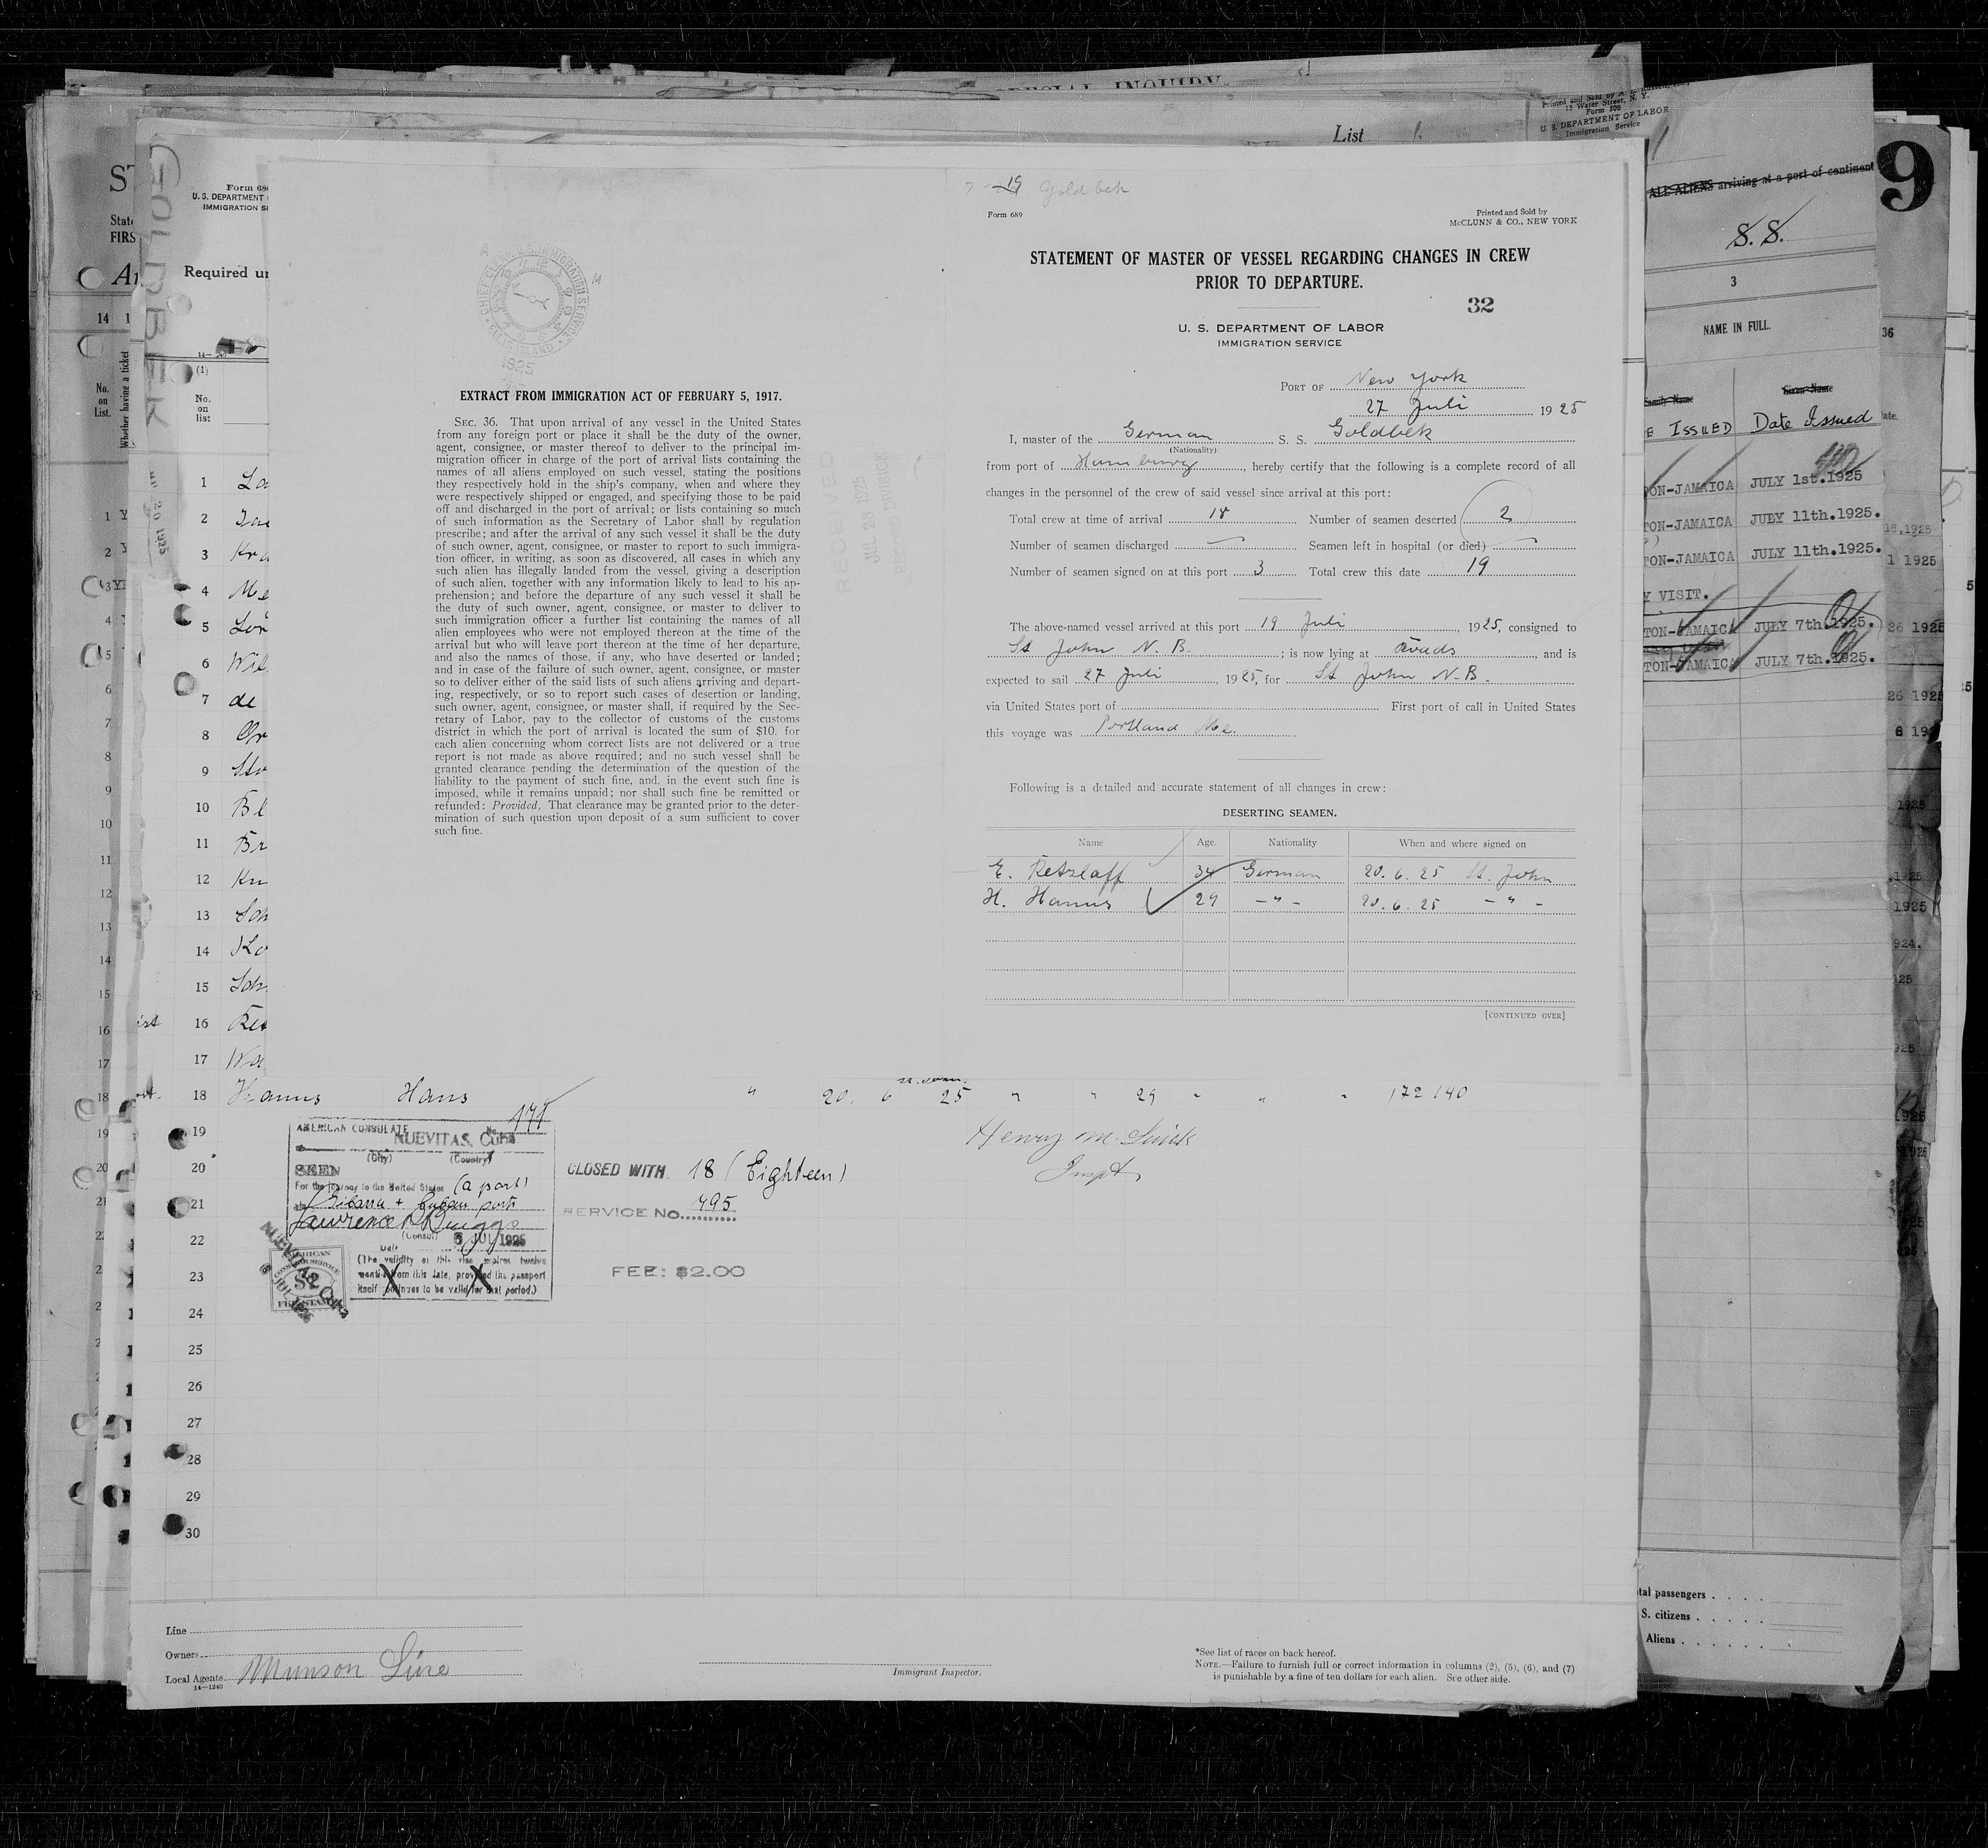 SPECIAL INQUIRY
List
Printed and Sold by
Water Street, N. Y.
Form 500
U. S. DEPARTMENT OF LABOR
Immigration Service
ALL ALIENS arriving at a port of continent
9
S. S.
3
NAME IN FULL.
Family Name
Given Name
E ISSUED Date Issued
TON-JAMAICA JULY 1st.1925
TON-JAMAICA JULY 11th.1925.
TON-JAMAICA JULY 11th.1925.
Y VISIT.
TON-JAMAICA JULY 7th.1925.
TON-JAMAICA JULY 7th.1925.
tal passengers
S. citizens
Aliens
GOLDBEK
Form 68
U. S. DEPARTMENT
IMMIGRATION SE
State
FIRS
Required un
14
No.
on
List.
Whether having a ticket
(1)
No.
on
list
19 Goldbek
Form 689
Printed and Sold by
McCLUNN & CO., NEW YORK
STATEMENT OF MASTER OF VESSEL REGARDING CHANGES IN CREW
PRIOR TO DEPARTURE.
32
U. S. DEPARTMENT OF LABOR
IMMIGRATION SERVICE
PORT OF New York
27 Juli 1925
I, master of the German S. S. Goldbek
(Nationality)
from port of Hamburg, hereby certify that the following is a complete record of all
changes in the personnel of the crew of said vessel since arrival at this port:
Total crew at time of arrival 18 Number of seamen deserted 2
Number of seamen discharged — Seamen left in hospital (or died) —
Number of seamen signed on at this port 3 Total crew this date 19
The above-named vessel arrived at this port 19 Juli, 1925, consigned to
St John N. B.; is now lying at Roads, and is
expected to sail 27 Juli, 1925, for St John N. B.
via United States port of First port of call in United States
this voyage was Portland Me.
Following is a detailed and accurate statement of all changes in crew:
DESERTING SEAMEN.
Name Age. Nationality When and where signed on
E. Retzlaff 34 German 20. 6. 25 St. John
H. Hanus 29 - " - 20. 6. 25 - " -
[CONTINUED OVER]
CHIEF CLERK U.S. IMMIGRATION SERVICE
ELLIS ISLAND
1925
RECEIVED
JUL 28 1925
RECORD DIVISION
EXTRACT FROM IMMIGRATION ACT OF FEBRUARY 5, 1917.
SEC. 36. That upon arrival of any vessel in the United States
from any foreign port or place it shall be the duty of the owner,
agent, consignee, or master thereof to deliver to the principal im-
migration officer in charge of the port of arrival lists containing the
names of all aliens employed on such vessel, stating the positions
they respectively hold in the ship's company, when and where they
were respectively shipped or engaged, and specifying those to be paid
off and discharged in the port of arrival; or lists containing so much
of such information as the Secretary of Labor shall by regulation
prescribe; and after the arrival of any such vessel it shall be the duty
of such owner, agent, consignee, or master to report to such immigra-
tion officer, in writing, as soon as discovered, all cases in which any
such alien has illegally landed from the vessel, giving a description
of such alien, together with any information likely to lead to his ap-
prehension; and before the departure of any such vessel it shall be
the duty of such owner, agent, consignee, or master to deliver to
such immigration officer a further list containing the names of all
alien employees who were not employed thereon at the time of the
arrival but who will leave port thereon at the time of her departure,
and also the names of those, if any, who have deserted or landed;
and in case of the failure of such owner, agent, consignee, or master
so to deliver either of the said lists of such aliens arriving and depart-
ing, respectively, or so to report such cases of desertion or landing,
such owner, agent, consignee, or master shall, if required by the Sec-
retary of Labor, pay to the collector of customs of the customs
district in which the port of arrival is located the sum of $10. for
each alien concerning whom correct lists are not delivered or a true
report is not made as above required; and no such vessel shall be
granted clearance pending the determination of the question of the
liability to the payment of such fine, and, in the event such fine is
imposed, while it remains unpaid; nor shall such fine be remitted or
refunded: Provided, That clearance may be granted prior to the deter-
mination of such question upon deposit of a sum sufficient to cover
such fine.
1
2
3 Kra
4 Me
5
6
7 de
8
9
10 Bl
11 Br
12 Kn
13 Sch
14
15 Sch
16 Ret
17 Wa
18 Hanus Hans " 20. 6 25 " " 29 " " " 172 140
19
20
21
22
23
24
25
26
27
28
29
30
AMERICAN CONSULATE
NUEVITAS, Cuba
(City) (Country)
SEEN
For the journey to the United States (a port)
via Gibara + Cuban ports
Lawrence P. Briggs
(Consul)
Date 6 JUL 1925
(The validity of this visa expires twelve
months from this date, provided the passport
itself continues to be valid for that period.)
AMERICAN
CONSULAR SERVICE
$2
FEE STAMP
NUEVITAS, Cuba
6 JUL 1925
CLOSED WITH 18 (Eighteen)
SERVICE No. 795
FEE: $2.00
Henry M.
Inspt
Line
Owners
Local Agents Munson Line
14—1240
Immigrant Inspector.
*See list of races on back hereof.
NOTE.—Failure to furnish full or correct information in columns (2), (5), (6), and (7)
is punishable by a fine of ten dollars for each alien. See other side.